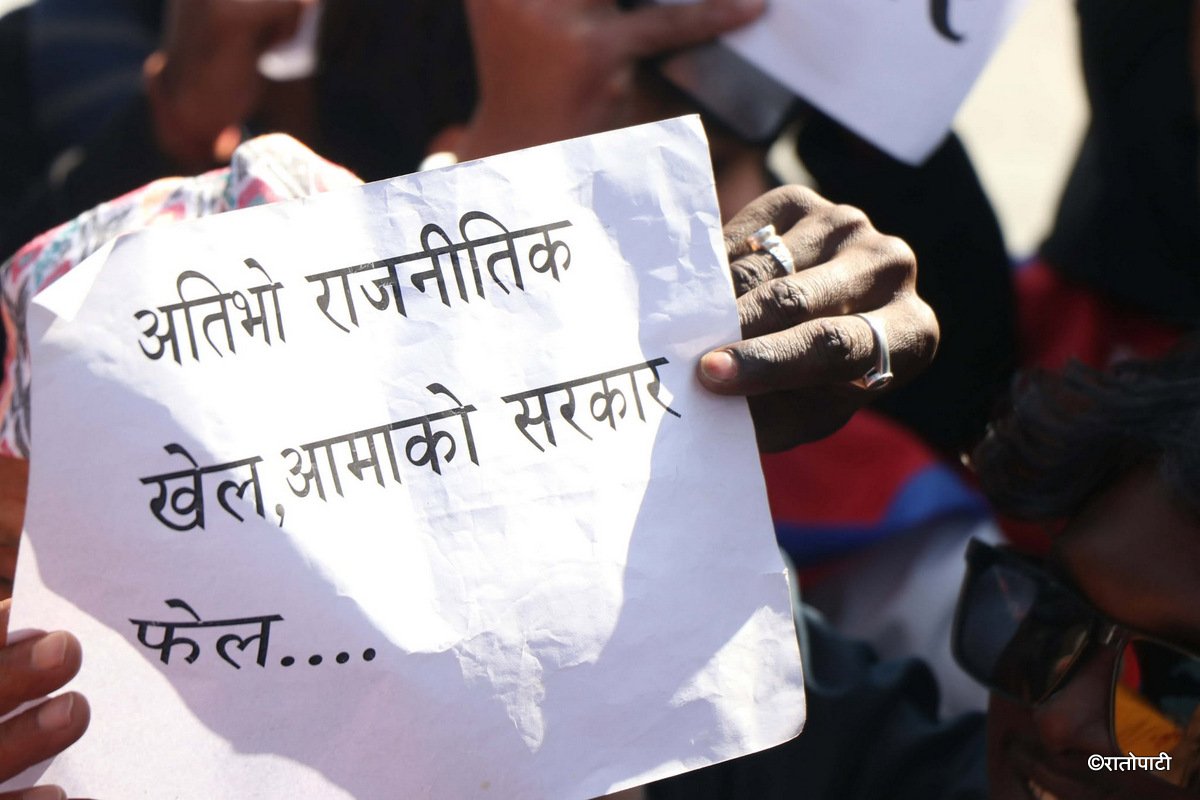 अतिभो राजनीतिक
खेल,आमाको सरकार
फेल....
©रातोपाटी